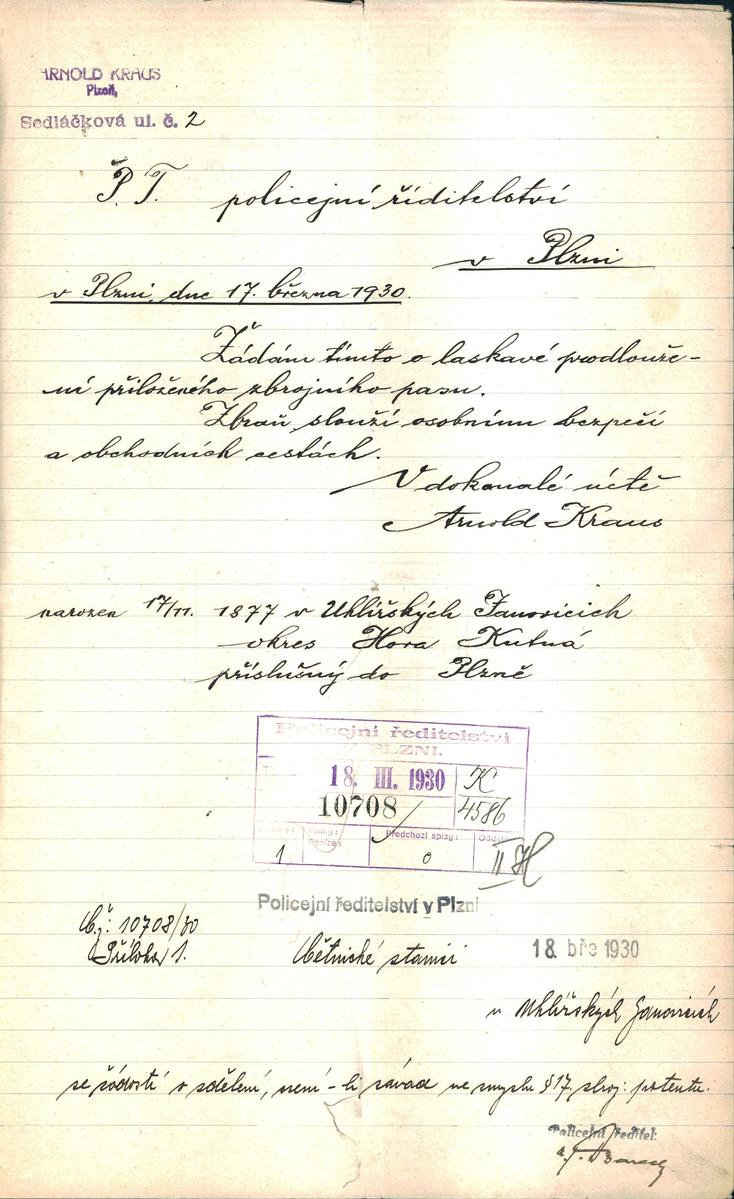 ARNOLD KRAUS
Plzeň,
Sedláčková ul. č. 2
P. T. policejní říditelství
v Plzni
v Plzni, dne 17. března 1930.
Žádám tímto o laskavé prodlouže-
ní přiloženého zbrojního pasu.
Zbraň slouží osobnímu bezpečí
a obchodních cestách.
V dokonalé úctě
Arnold Kraus
narozen 17/11. 1877 v Uhlířských Janovicích
okres Hora Kutná
příslušný do Plzně
Policejní ředitelství
v PLZNI.
18. III. 1930 K
10708 4586
Předchozí spisy:
1 0 II H
Policejní ředitelství v Plzni
Čj: 10708/30
Příloha 1. Četnické stanici 18. bře 1930
v Uhlířských Janovicích
se žádostí o sdělení, není-li závad ve smyslu § 17. zbroj. patentu.
Policejní ředitel: